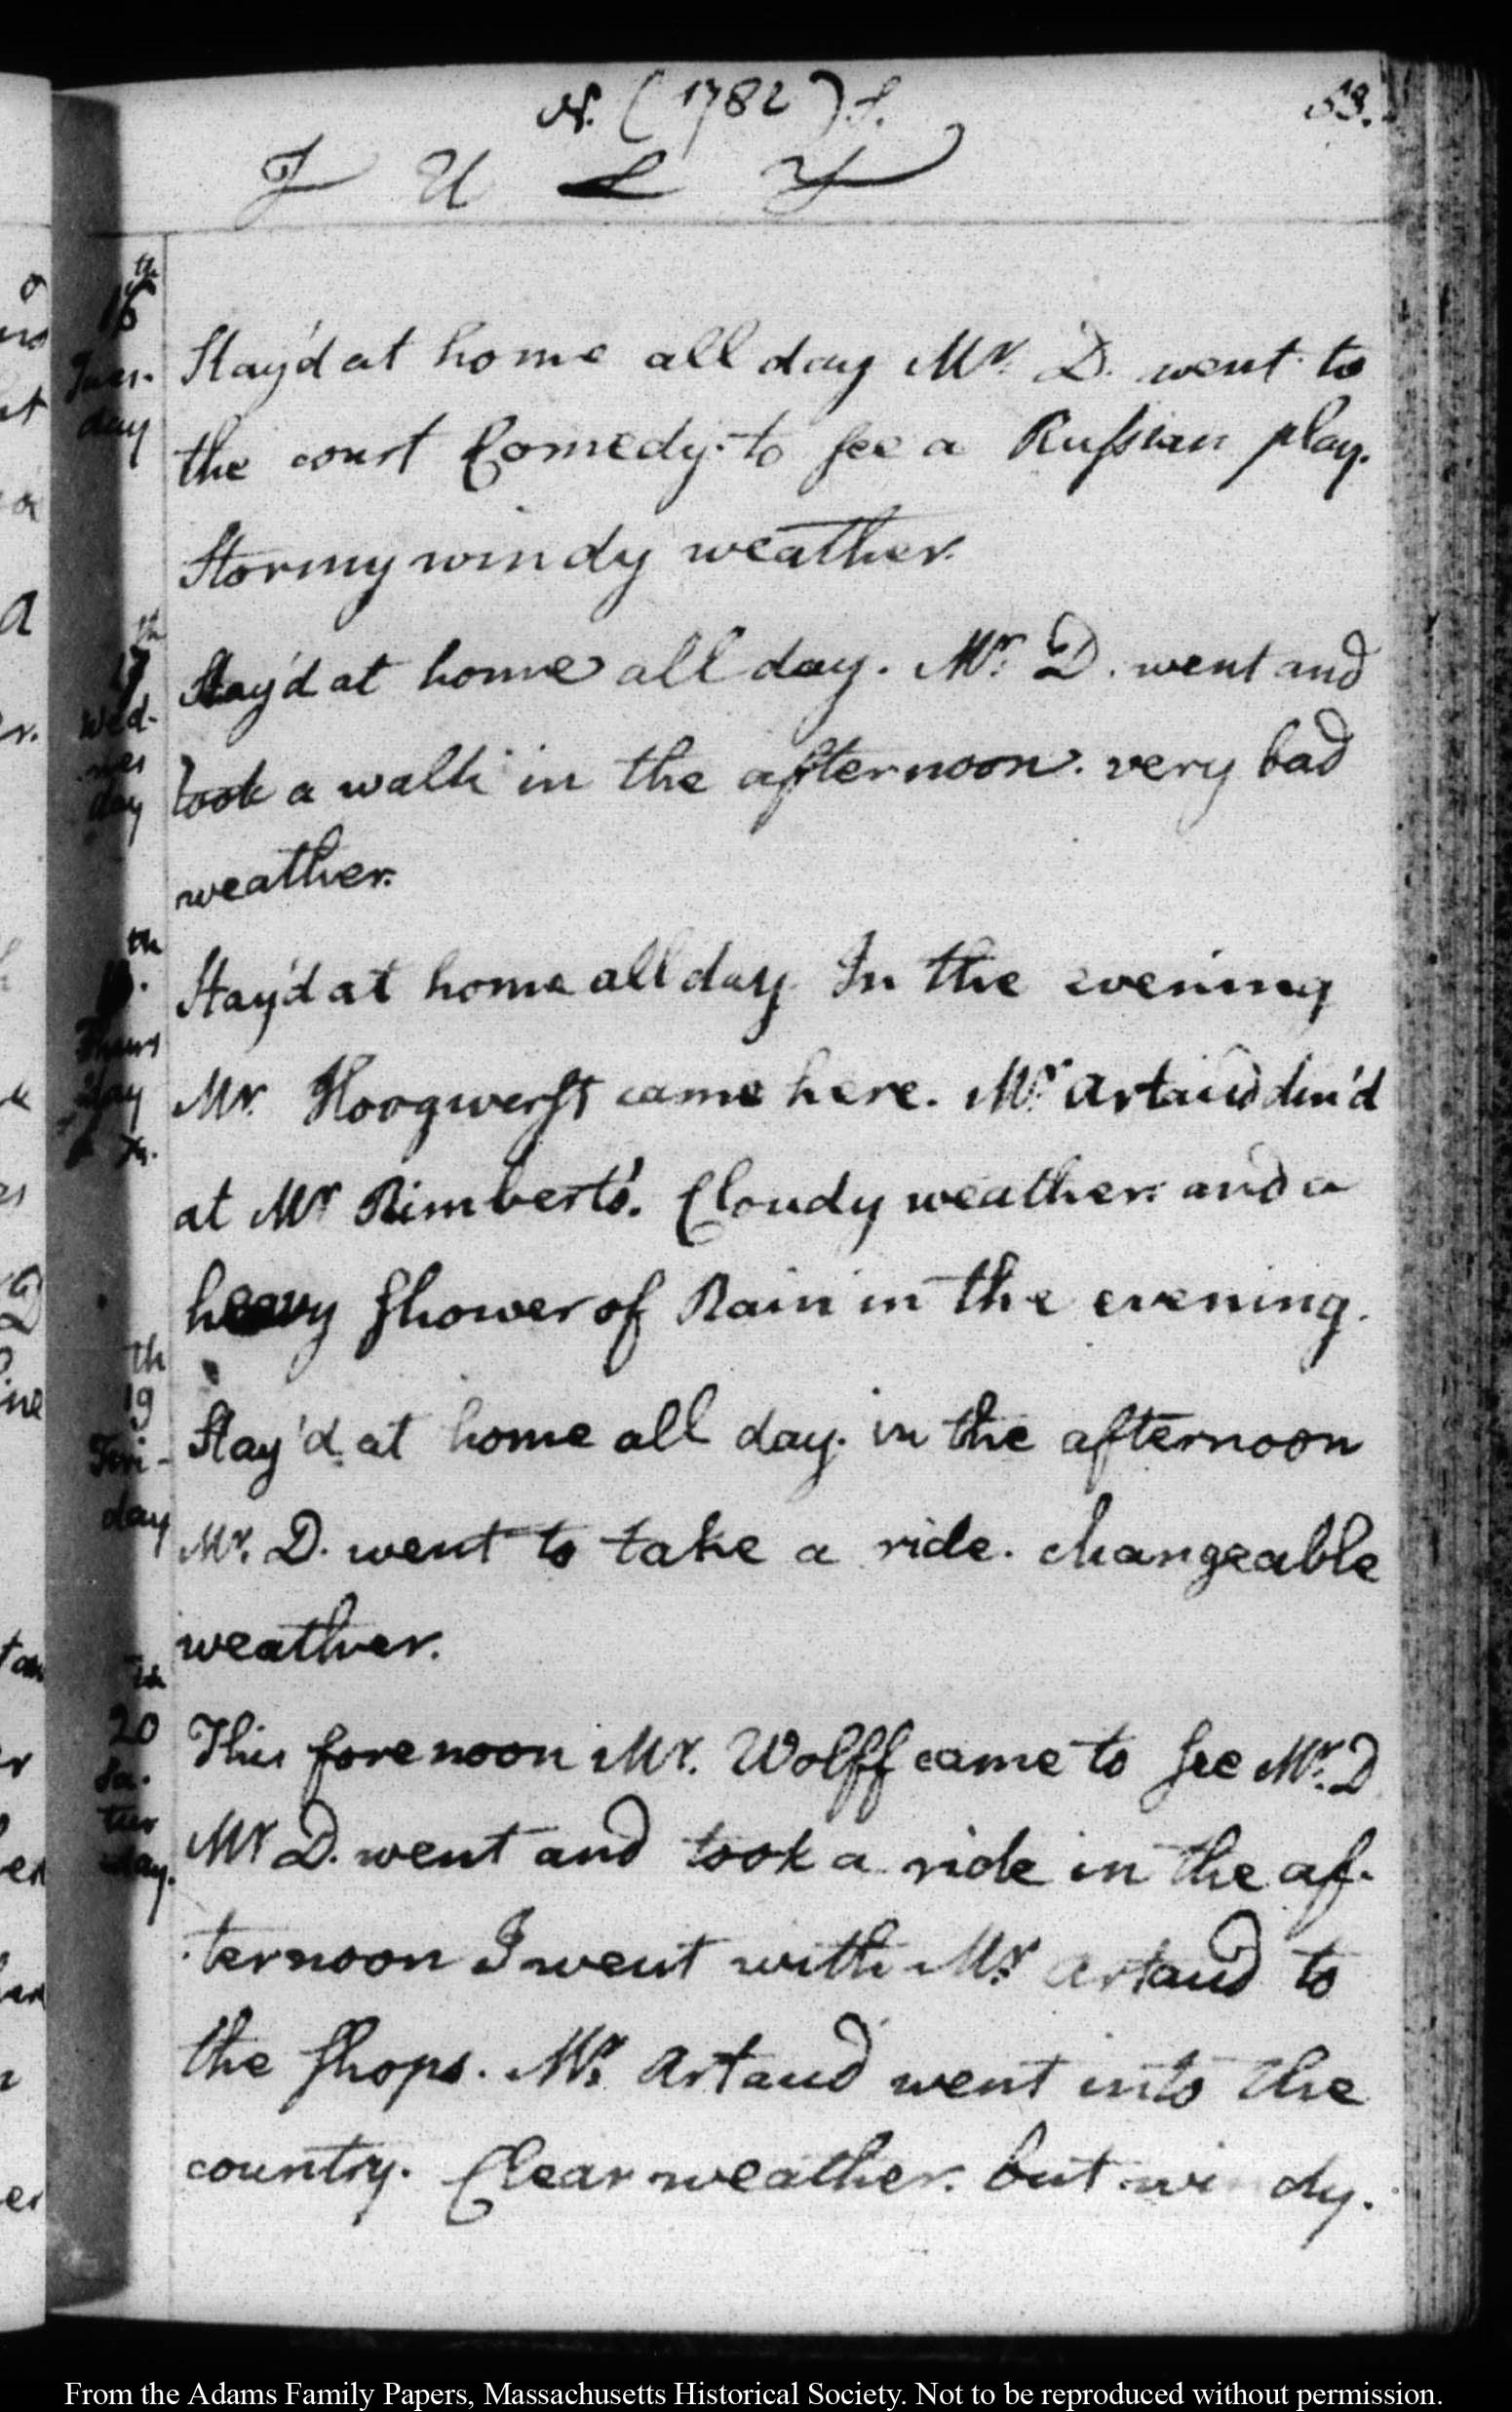 N. (1782) S.
53.
J U L Y
16th
Tues-
day
Stay'd at home all day Mr. D. went to
the court Comedy to see a Russian play.
Stormy windy weather.
17th
Wed-
nes
day
Stay'd at home all day. Mr. D. went and
took a walk in the afternoon. very bad
weather.
th
Thurs
day
Stay'd at home all day. In the evening
Mr. Hoogwerft came here. Mr. Artaud din'd
at Mr Rimbert's. Cloudy weather. and a
heavy shower of Rain in the evening.
19th
Fri-
day
Stay'd at home all day. in the afternoon
Mr. D. went to take a ride. changeable
weather.
20th
Sa-
tur
day.
This forenoon Mr. Wolff came to see Mr. D
Mr D. went and took a ride in the af-
ternoon I went with Mr. Artaud to
the shops. Mr. Artaud went into the
country. Clear weather. but windy.
From the Adams Family Papers, Massachusetts Historical Society. Not to be reproduced without permission.